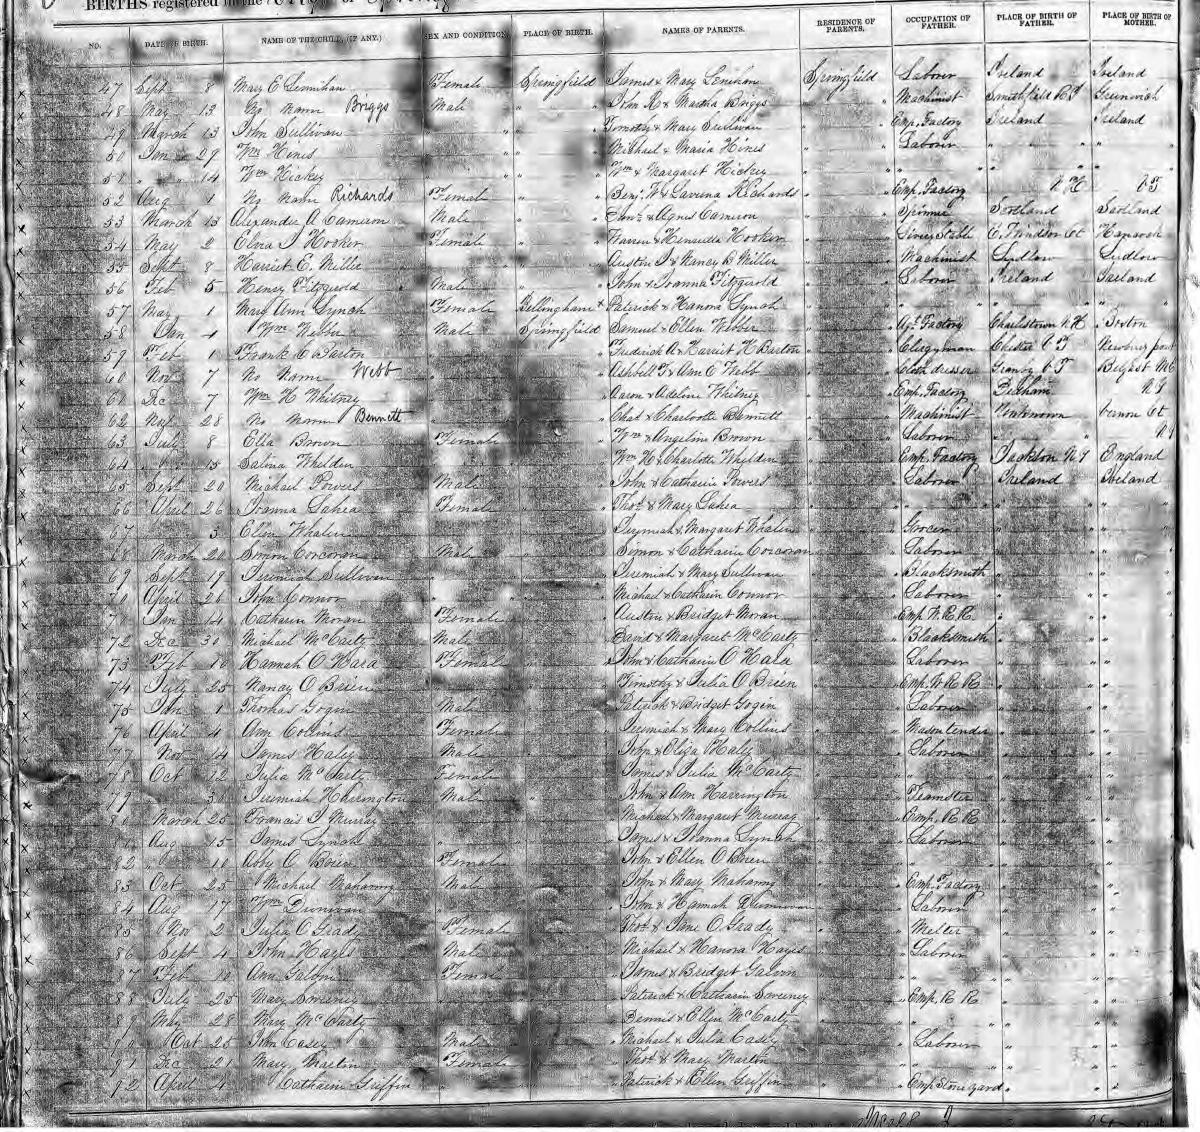 BIRTHS registered in the City of
NO. DATE OF BIRTH. NAME OF THE CHILD, (IF ANY.) SEX AND CONDITION. PLACE OF BIRTH. NAMES OF PARENTS. RESIDENCE OF PARENTS. OCCUPATION OF FATHER. PLACE OF BIRTH OF FATHER. PLACE OF BIRTH OF MOTHER.
47 Sept 8 Mary E Lennihan Female Springfield James & Mary Lenihan Springfield Laborer Ireland Ireland
48 May 13 No Name Briggs Male " " John R & Martha Briggs " Machinist Smithfield R I Greenwich
49 March 13 John Sullivan " " " Timothy & Mary Sullivan " Emp. Factory Ireland Ireland
50 Jan 29 Wm Hines " " " Michael & Maria Hines " Laborer " "
51 " 14 Wm Hickey " " " Wm & Margaret Hickey " " " "
52 Aug 1 No Name Richards Female " " Benj. W & Lavina Richards " Emp. Factory N H V T
53 March 13 Alexander A Cameron Male " " & Agnes Cameron " Spinner Scotland Scotland
54 May 2 J Hooker Female " " Warren & Henrietta Hooker " Livery Stable E. Windsor Ct Hanover
55 Sept 8 Harriet E. Miller " " " Austin & Nancy B Miller " Machinist Ludlow Ludlow
56 Feb 5 Henry Fitzgerold Male " " John & Joanna Fitzgerold " Laborer Ireland Ireland
57 May 1 Mary Ann Lynch Female Bellingham " Patrick & Hanora Lynch " " " "
58 Jan 4 Wm Webber Male Springfield Samuel & Ellen Webber " Agt Factory Charlestown N H Boston
59 Feb 1 Frank E Barton " " " Frederick A & Harriet H Barton " Clergyman Chester V T Newbury port
60 Nov 7 No Name Webb " " " Ashbell & Ann E Webb " Cloth dresser Granby C T Belfast Me
61 Dec 7 Wm H Whitney " " " Aaron & Adeline Whitney " Emp. Factory Pelham N Y
62 28 No Name Bennett " " " Chas & Charlotte Bennett " Machinist Unknown Vernon Ct
63 July 8 Ella Brown Female " " Wm & Angeline Brown " Laborer "
64 " 15 Salina Whelden " " " Wm H & Charlotte Whelden " Emp. Factory Jackson N Y England
65 Sept 20 Michael Powers Male " " John & Catharin Powers " Laborer Ireland Ireland
66 April 26 Joanna Lahea Female " " Thos & Mary Lahea " " " "
67 " 3 Ellen Whalen " " " Jerymiah & Margaret Whalen " Grocer " "
68 March 20 Simon Corcoran Male " " Simon & Catharin Corcoran " Laborer " "
69 Sept 19 Jeremiah Sullivan " " " Jeremiah & Mary Sullivan " Blacksmith " "
70 April 26 John Connor " " " Michael & Catharin Connor " Laborer " "
71 Jan 14 Catharin Moran Female " " Austin & Bridget Moran " Emp W. R. R. " "
72 Dec 30 Michael McCarty Male " " David & Margaret McCarty " Blacksmith " "
73 Feb 10 Hannah O Hara Female " " John & Catharin O Hara " Laborer " "
74 July 25 Nancy O Brien " " " Timothy & Julia O Brien " Emp W R R " "
75 Jan 1 Thomas Gogin Male " " Patrick & Bridget Gogen " Laborer " "
76 April 4 Ann Collins Female " " Jeremiah & Mary Collins " Mason tender " "
77 Nov 14 James Haley Male " " John & Eliza Haley " Laborer " "
78 Oct 12 Julia McCarty Female " " James & Julia McCarty " " " "
79 " 30 Jeremiah Harington Male " " John & Ann Harrington " Teamster " "
80 March 25 Francis J Murray " " " Michael & Margaret Murray " Emp. R R " "
81 Aug 15 James Lynch " " " James & Joanna Lynch " Laborer " "
82 " 10 Aby O Brien Female " " John & Ellen O Brien " " " "
83 Oct 25 Michael Mahanny Male " " John & Mary Mahanny " Emp. Factory " "
84 Aug 17 Wm Dunivan " " " John & Hannah " Laborer " "
85 Nov 2 Julia O Grady Female " " Thos & Jane O Grady " Melter " "
86 Sept 4 John Hayes Male " " Michael & Hanora Hayes " Laborer " "
87 Feb 10 Ann Galvin Female " " James & Bridget Galvin " " " "
88 July 25 Mary Sweeney " " " Patrick & Catharin Sweeney " Emp. R R " "
89 May 28 Mary McCarty " " " Dennis & Ellen McCarty " " " "
90 Oct 25 John Casey Male " " Michael & Julia Casey " Laborer " "
91 Dec 21 Mary Martin Female " " Thos & Mary Martin " " " "
92 April 4 Catharin Griffin " " " Patrick & Ellen Griffin " Emp Stone yard " "